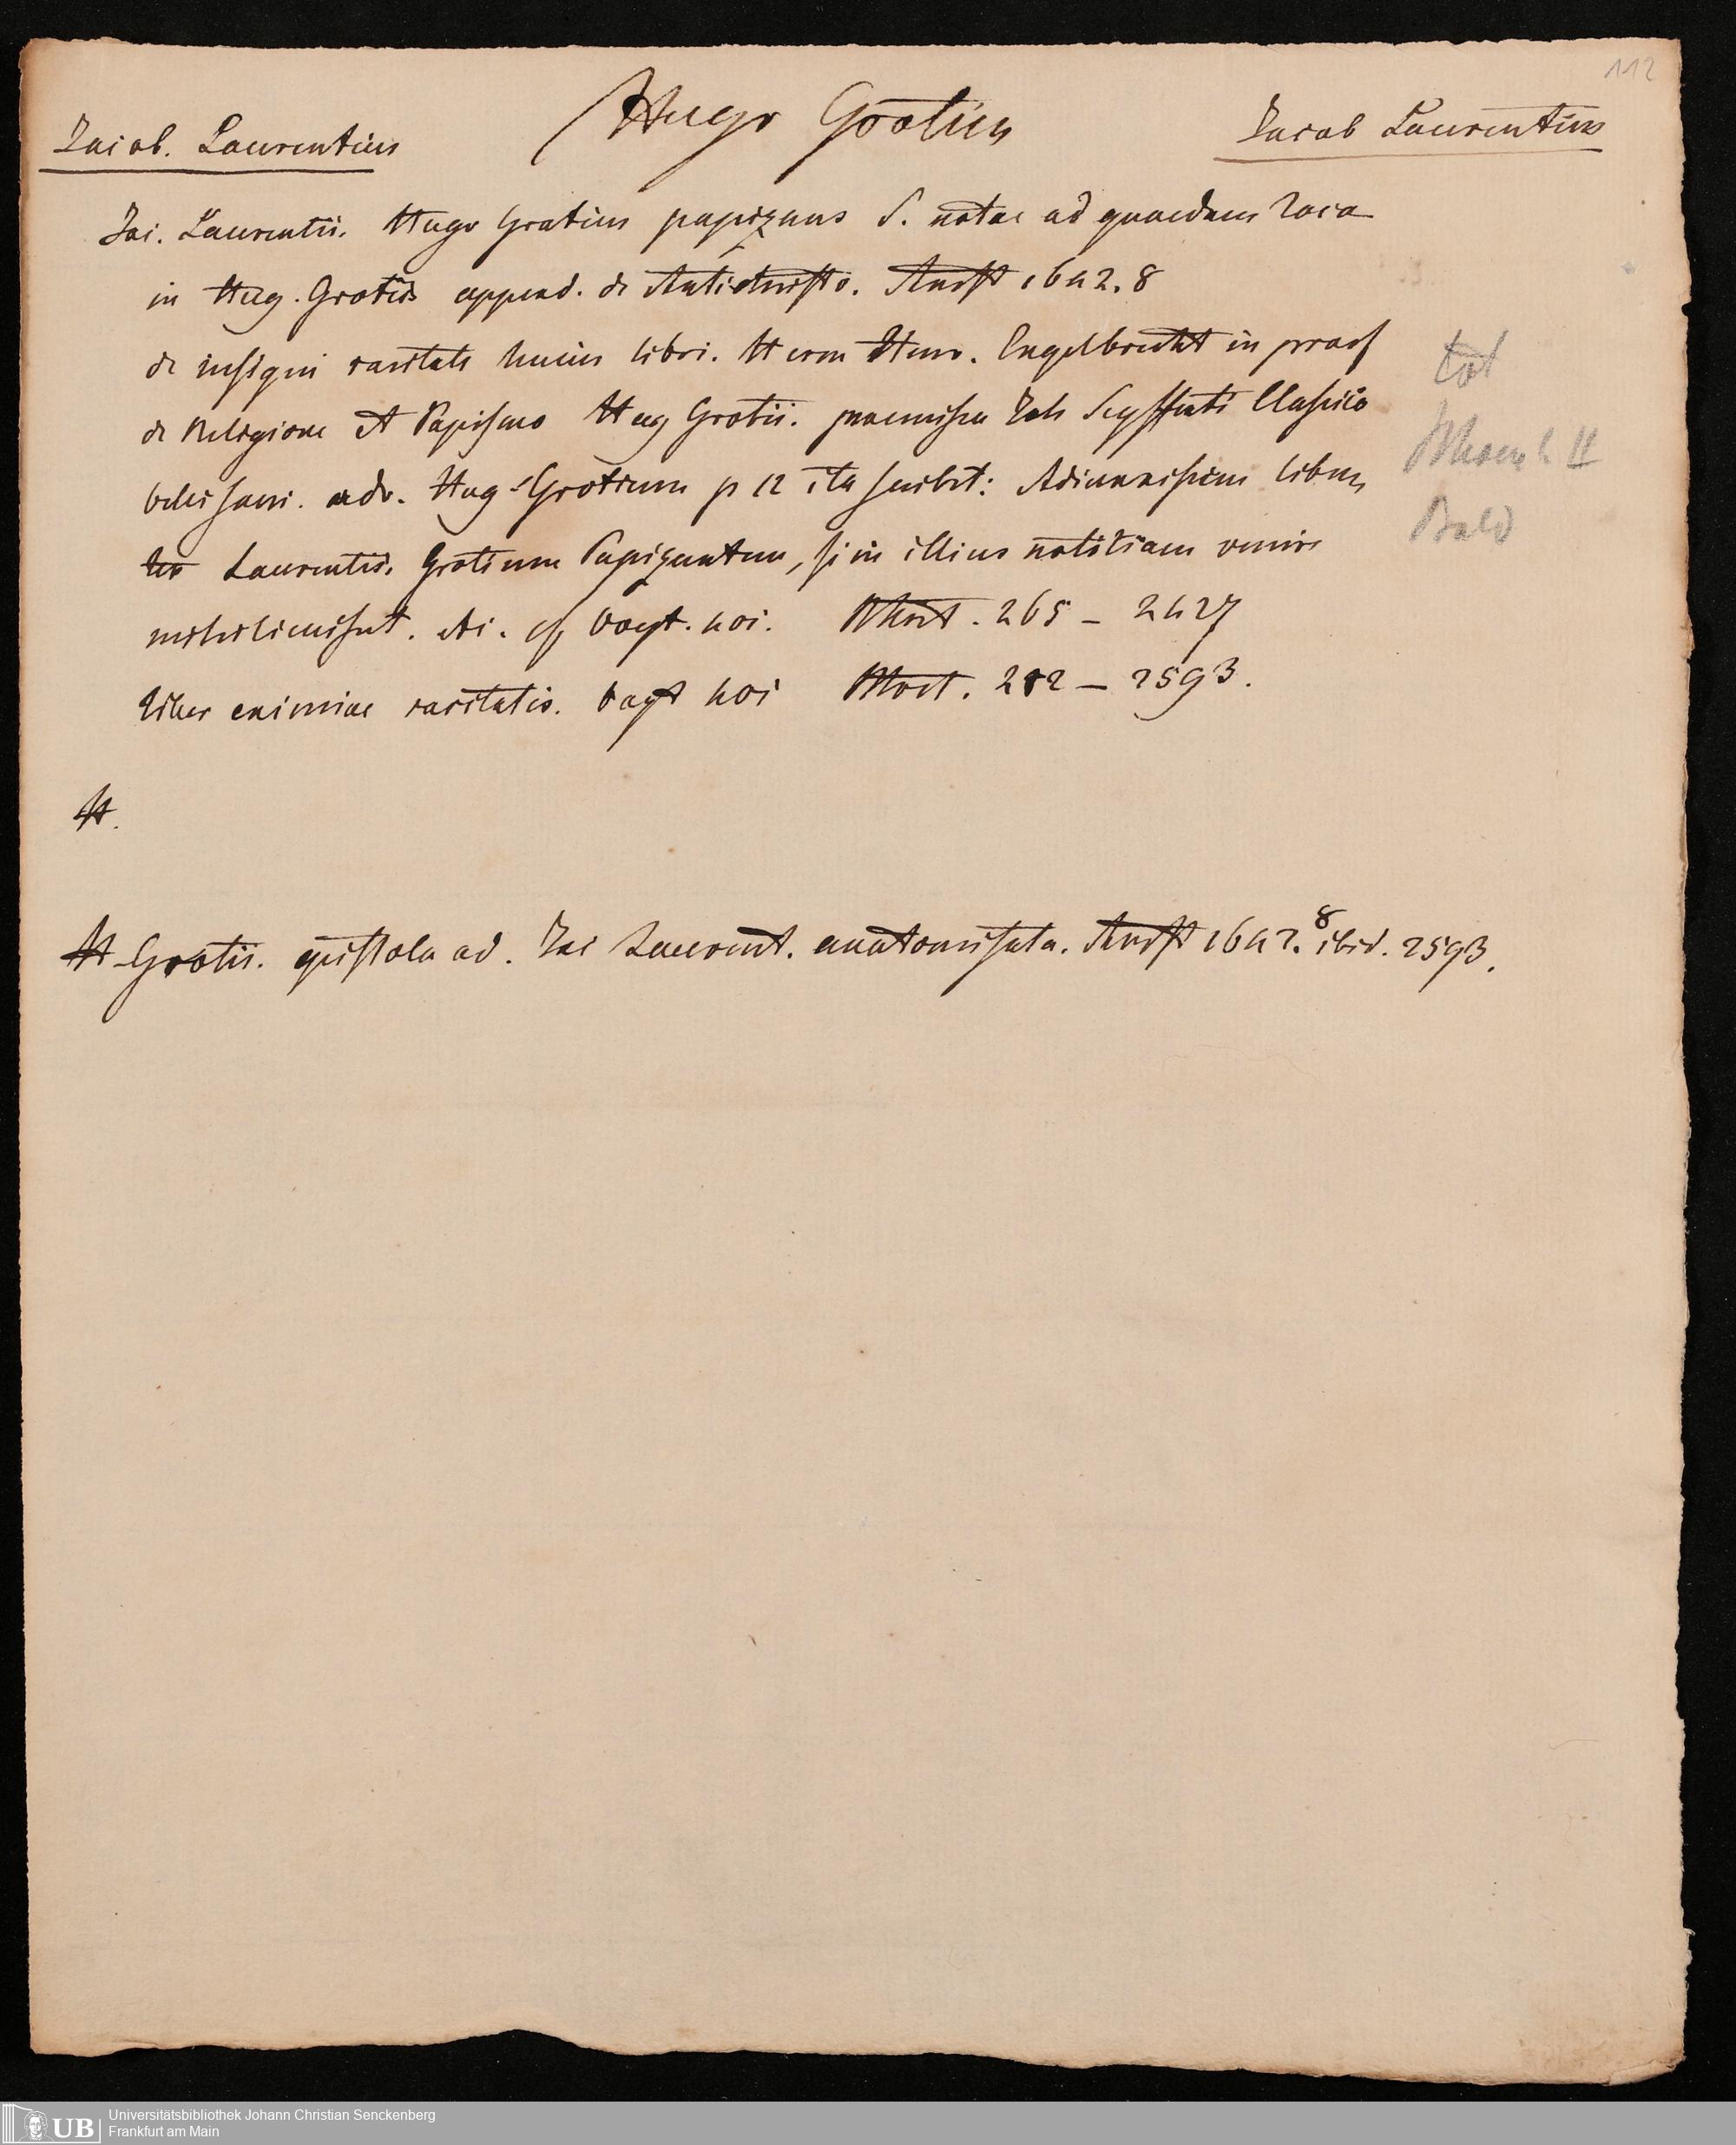 112
Jacob. Laurentius
Hugo Grotius
Jacob Laurentius
Jac. Laurentii. Hugo Grotius papizans S. notae ad quaedam loca
in Hug. Grotii append. de Antichristo. Amst 1642. 8
de insigni raritate huius libri. Herm Henr. Engelbrecht in praef
de Religione et Papismo Hug Grotii. praemissa Joh Seyfferti Classico
adv. Hug Grotium p 12 ita scribit: librum
Laurentii. Grotium Papizantem, si in illius notitiam venire
mihi licuisset. cf Vogt. 265 - 2427
liber eximiae raritatis. Vogt 282 - 2593.
H.
H Grotii. epistola ad. Jac Laurent. anatomisata. Amst 1642. 8 ibid. 2593.
tot
II
Bald
Universitätsbibliothek Johann Christian Senckenberg
Frankfurt am Main
UB